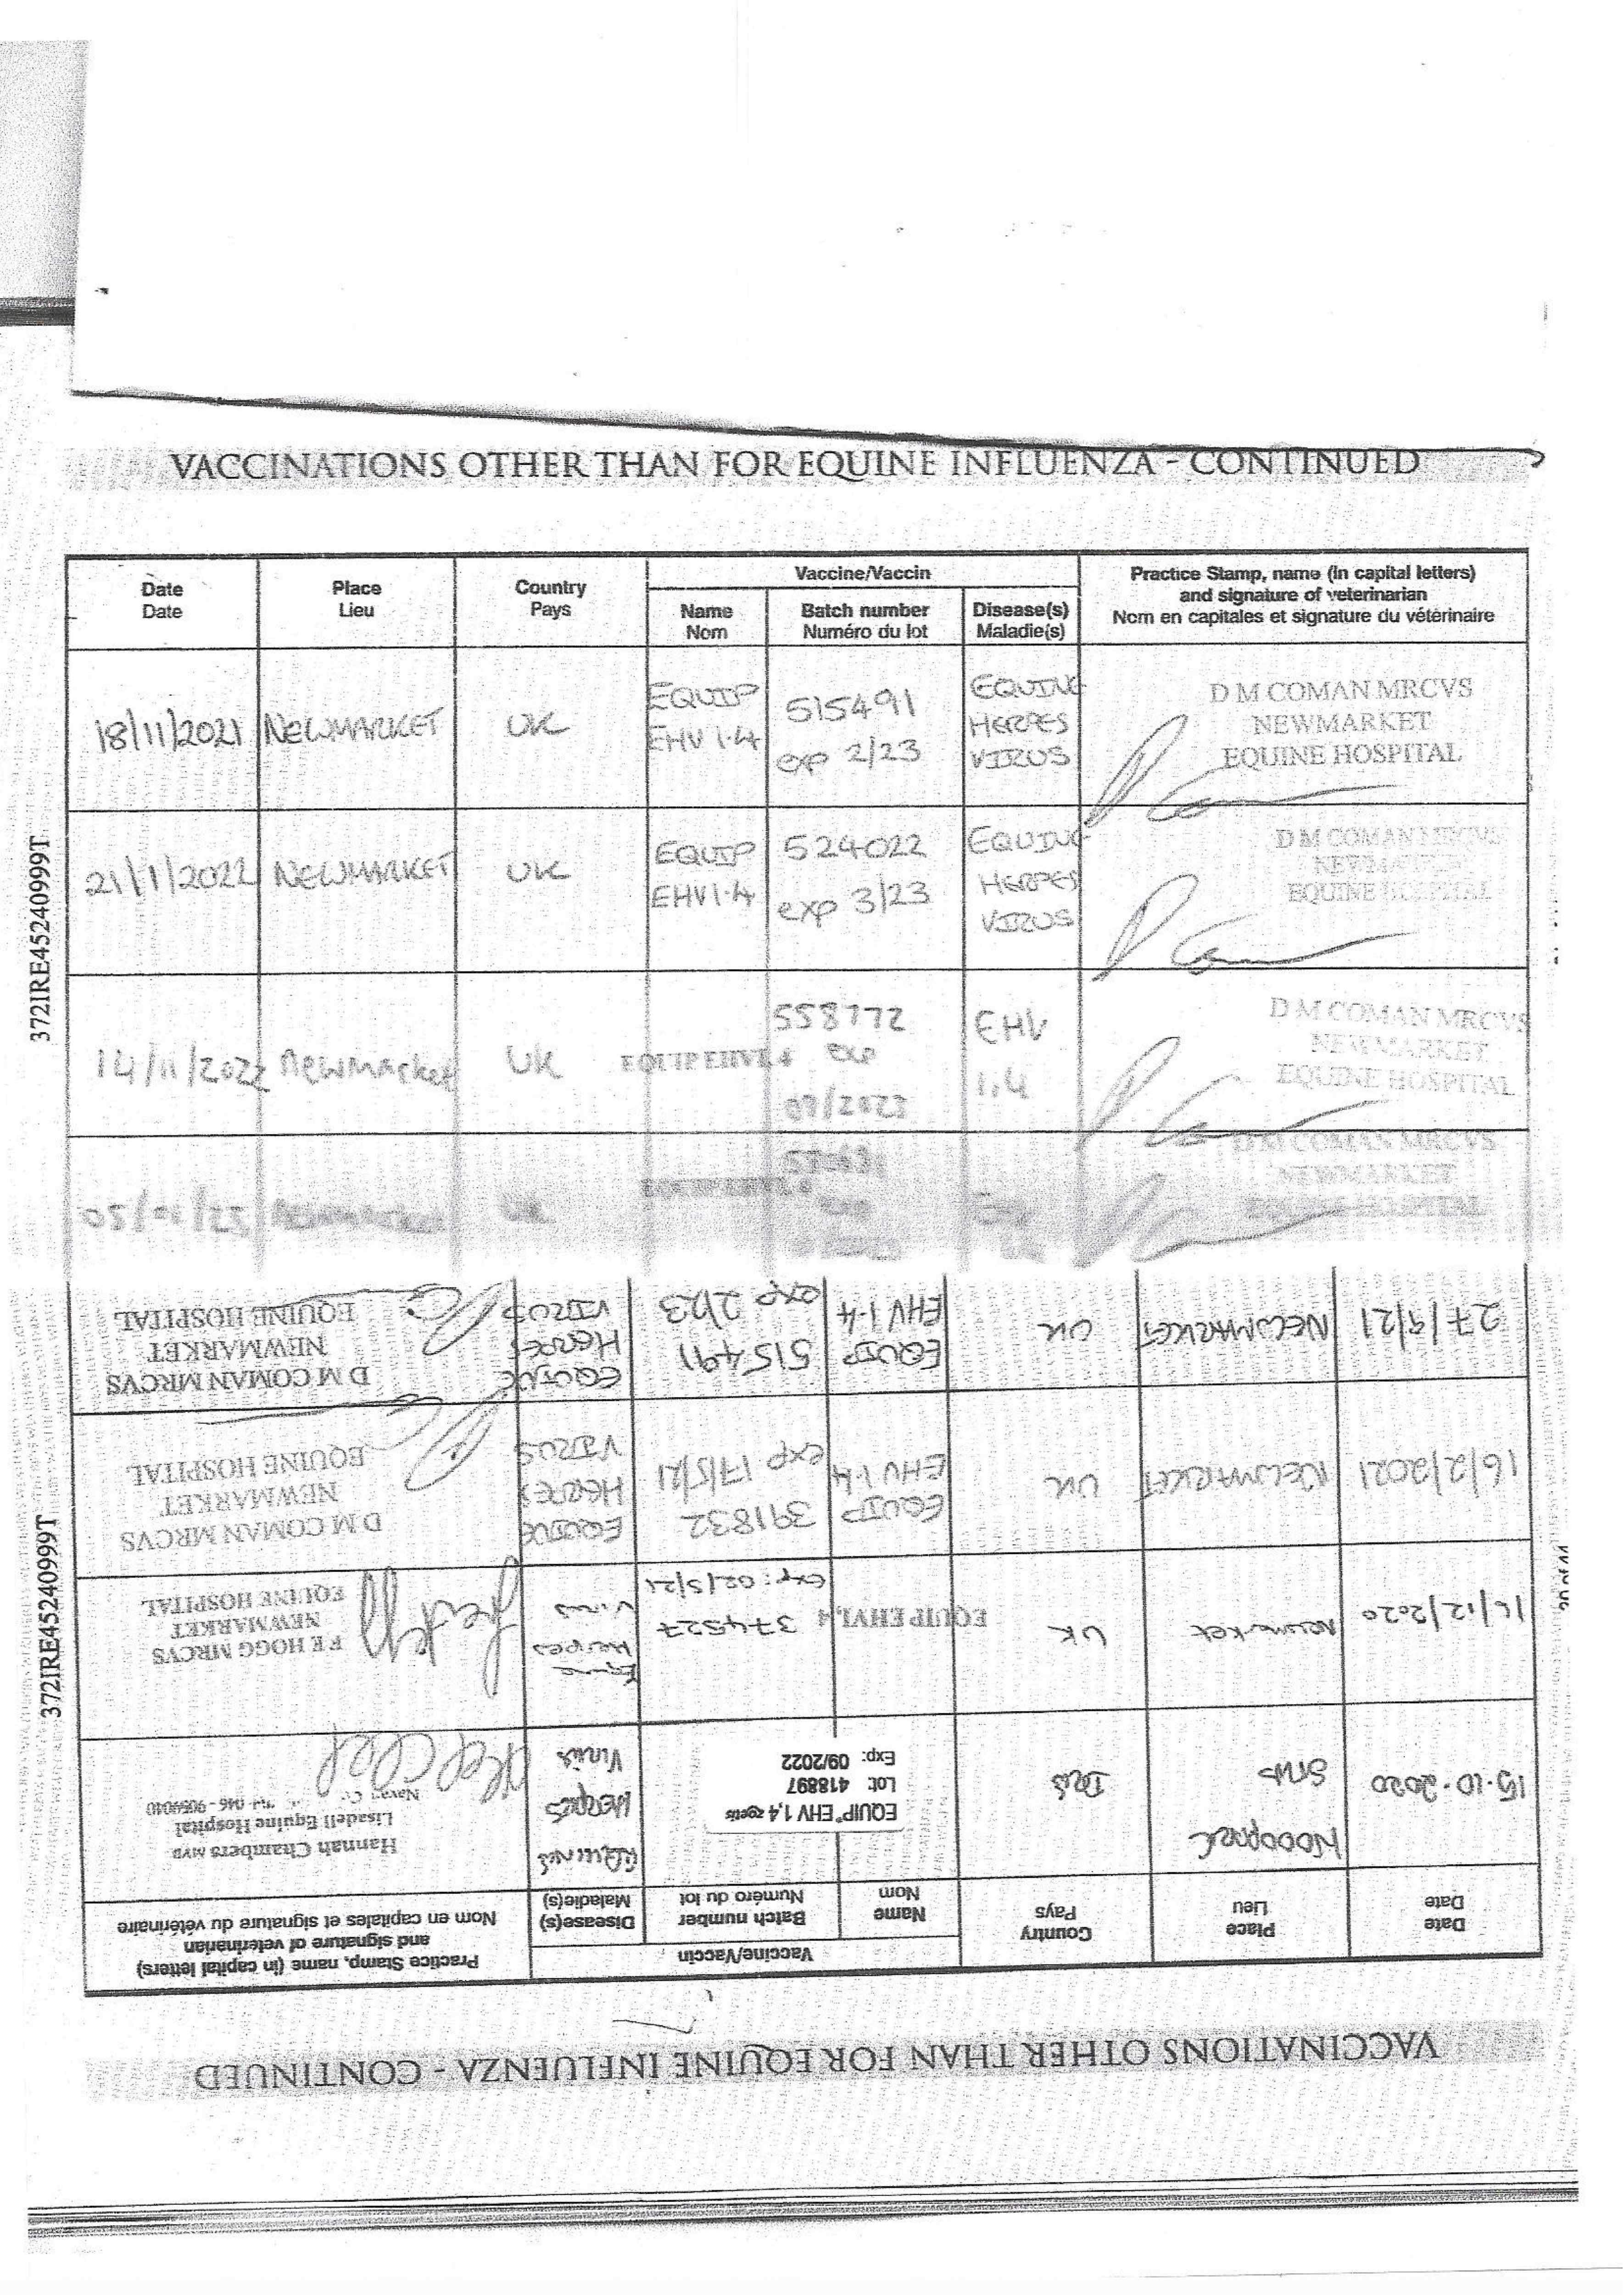 VACCINATIONS OTHER THAN FOR EQUINE INFLUENZA - CONTINUED
Date
Date
Place
Lieu
Country
Pays
Vaccine/Vaccin
Name
Nom
Batch number
Numéro du lot
Disease(s)
Maladie(s)
Practice Stamp, name (in capital letters)
and signature of veterinarian
Nom en capitales et signature du vétérinaire
18/11/2021
NEWMARKET
UK
EQUIP
EHV 1.4
515491
exp 2/23
EQUINE
HERPES
VIRUS
D M COMAN MRCVS
NEWMARKET
EQUINE HOSPITAL
21/1/2022
NEWMARKET
UK
EQUIP
EHV 1.4
524022
exp 3/23
EQUINE
HERPES
VIRUS
D M COMAN MRCVS
NEWMARKET
EQUINE HOSPITAL
14/11/2022
Newmarket
UK
EQUIP EHV1,4
558772
exp
07/2023
EHV
1.4
D M COMAN MRCVS
NEWMARKET
EQUINE HOSPITAL
Newmarket
UK
exp
D M COMAN MRCVS
NEWMARKET
EQUINE HOSPITAL
372IRE45240999T
372IRE45240999T
VACCINATIONS OTHER THAN FOR EQUINE INFLUENZA - CONTINUED
Date
Date
Place
Lieu
Country
Pays
Vaccine/Vaccin
Name
Nom
Batch number
Numéro du lot
Disease(s)
Maladie(s)
Practice Stamp, name (in capital letters)
and signature of veterinarian
Nom en capitales et signature du vétérinaire
15.10.2020
Woodpark
Stud
EQUIP EHV 1,4 zoetis
Lot: 418897
Exp: 09/2022
Herpes
Virus
Hannah Chambers MVB
Lisadell Equine Hospital
16/12/2020
Newmarket
UK
EQUIP EHV1,4
374527
exp: 02/5/21
Equine
Herpes
Virus
F E HOGG MRCVS
NEWMARKET
EQUINE HOSPITAL
16/2/2021
NEWMARKET
UK
EQUIP
EHV 1.4
391832
exp 17/5/21
EQUINE
HERPES
VIRUS
D M COMAN MRCVS
NEWMARKET
EQUINE HOSPITAL
27/9/21
NEWMARKET
UK
EQUIP
EHV 1.4
515491
exp 2/23
EQUINE
HERPES
VIRUS
D M COMAN MRCVS
NEWMARKET
EQUINE HOSPITAL